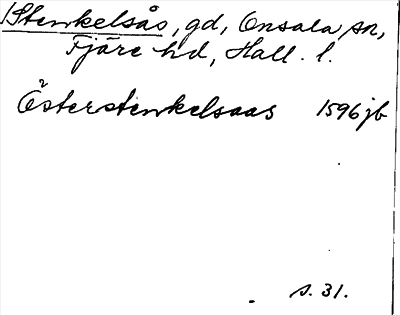 Stenkelsås, gd, Onsala sn,
Fjäre hd, Hall. l.
Österstenkelsaas 1596 jb
s. 31.